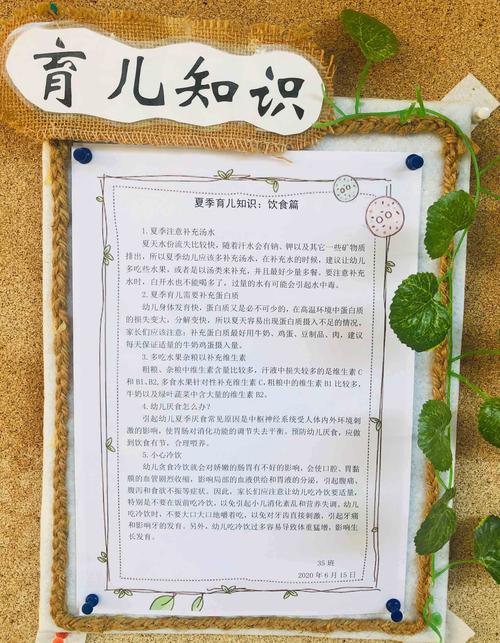 育儿知识
夏季育儿知识：饮食篇
1.夏季注意补充汤水
夏天水份流失比较快，随着汗水会有钠、钾以及其它一些矿物质
排出，所以夏季幼儿应该多补充汤水，在补充水的时候，建议让幼儿
多吃些水果，或者是以汤类来补充，并且最好少量多餐。要注意补充
水时，白开水也不能喝多了，过量的水有可能会引起水中毒。
2.夏季育儿需要补充蛋白质
幼儿身体发育快，蛋白质又是必不可少的，在高温环境中蛋白质
的损失变大，分解变快，所以夏天容易出现蛋白质摄入不足的情况。
家长们应该注意：补充蛋白质最好用牛奶、鸡蛋、豆制品、肉，建议
每天保证适量的牛奶鸡蛋摄入量。
3.多吃水果杂粮以补充维生素
粗粮、杂粮中维生素含量比较多，汗液中损失较多的是维生素C
和B1、B2，多食水果针对性补充维生素C，粗粮中的维生素B1比较多，
牛奶以及绿叶蔬菜中含大量的维生素B2。
4.幼儿厌食怎么办？
引起幼儿夏季厌食常见原因是中枢神经系统受人体内外环境刺
激的影响，使胃肠对消化功能的调节失去平衡，预防幼儿厌食，应做
到饮食有节、合理喂养。
5.小心冷饮
幼儿贪食冷饮就会对娇嫩的肠胃有不好的影响，会使口腔、胃黏
膜的血管剧烈收缩，影响局部的血液供给和胃液的分泌，引起腹痛、
腹泻和食欲不振等症状。因此，家长们应注意让幼儿吃冷饮要适量，
特别是不要在饭前吃冷饮，以免引起小儿消化紊乱和营养失调。幼儿
吃冷饮时，不要大口大口地嚼着吃，以免对牙齿直接刺激，引起牙痛
和影响牙的发育。另外，幼儿吃冷饮过多容易导致体重猛增，影响生
长发育。
35班
2020年6月15日